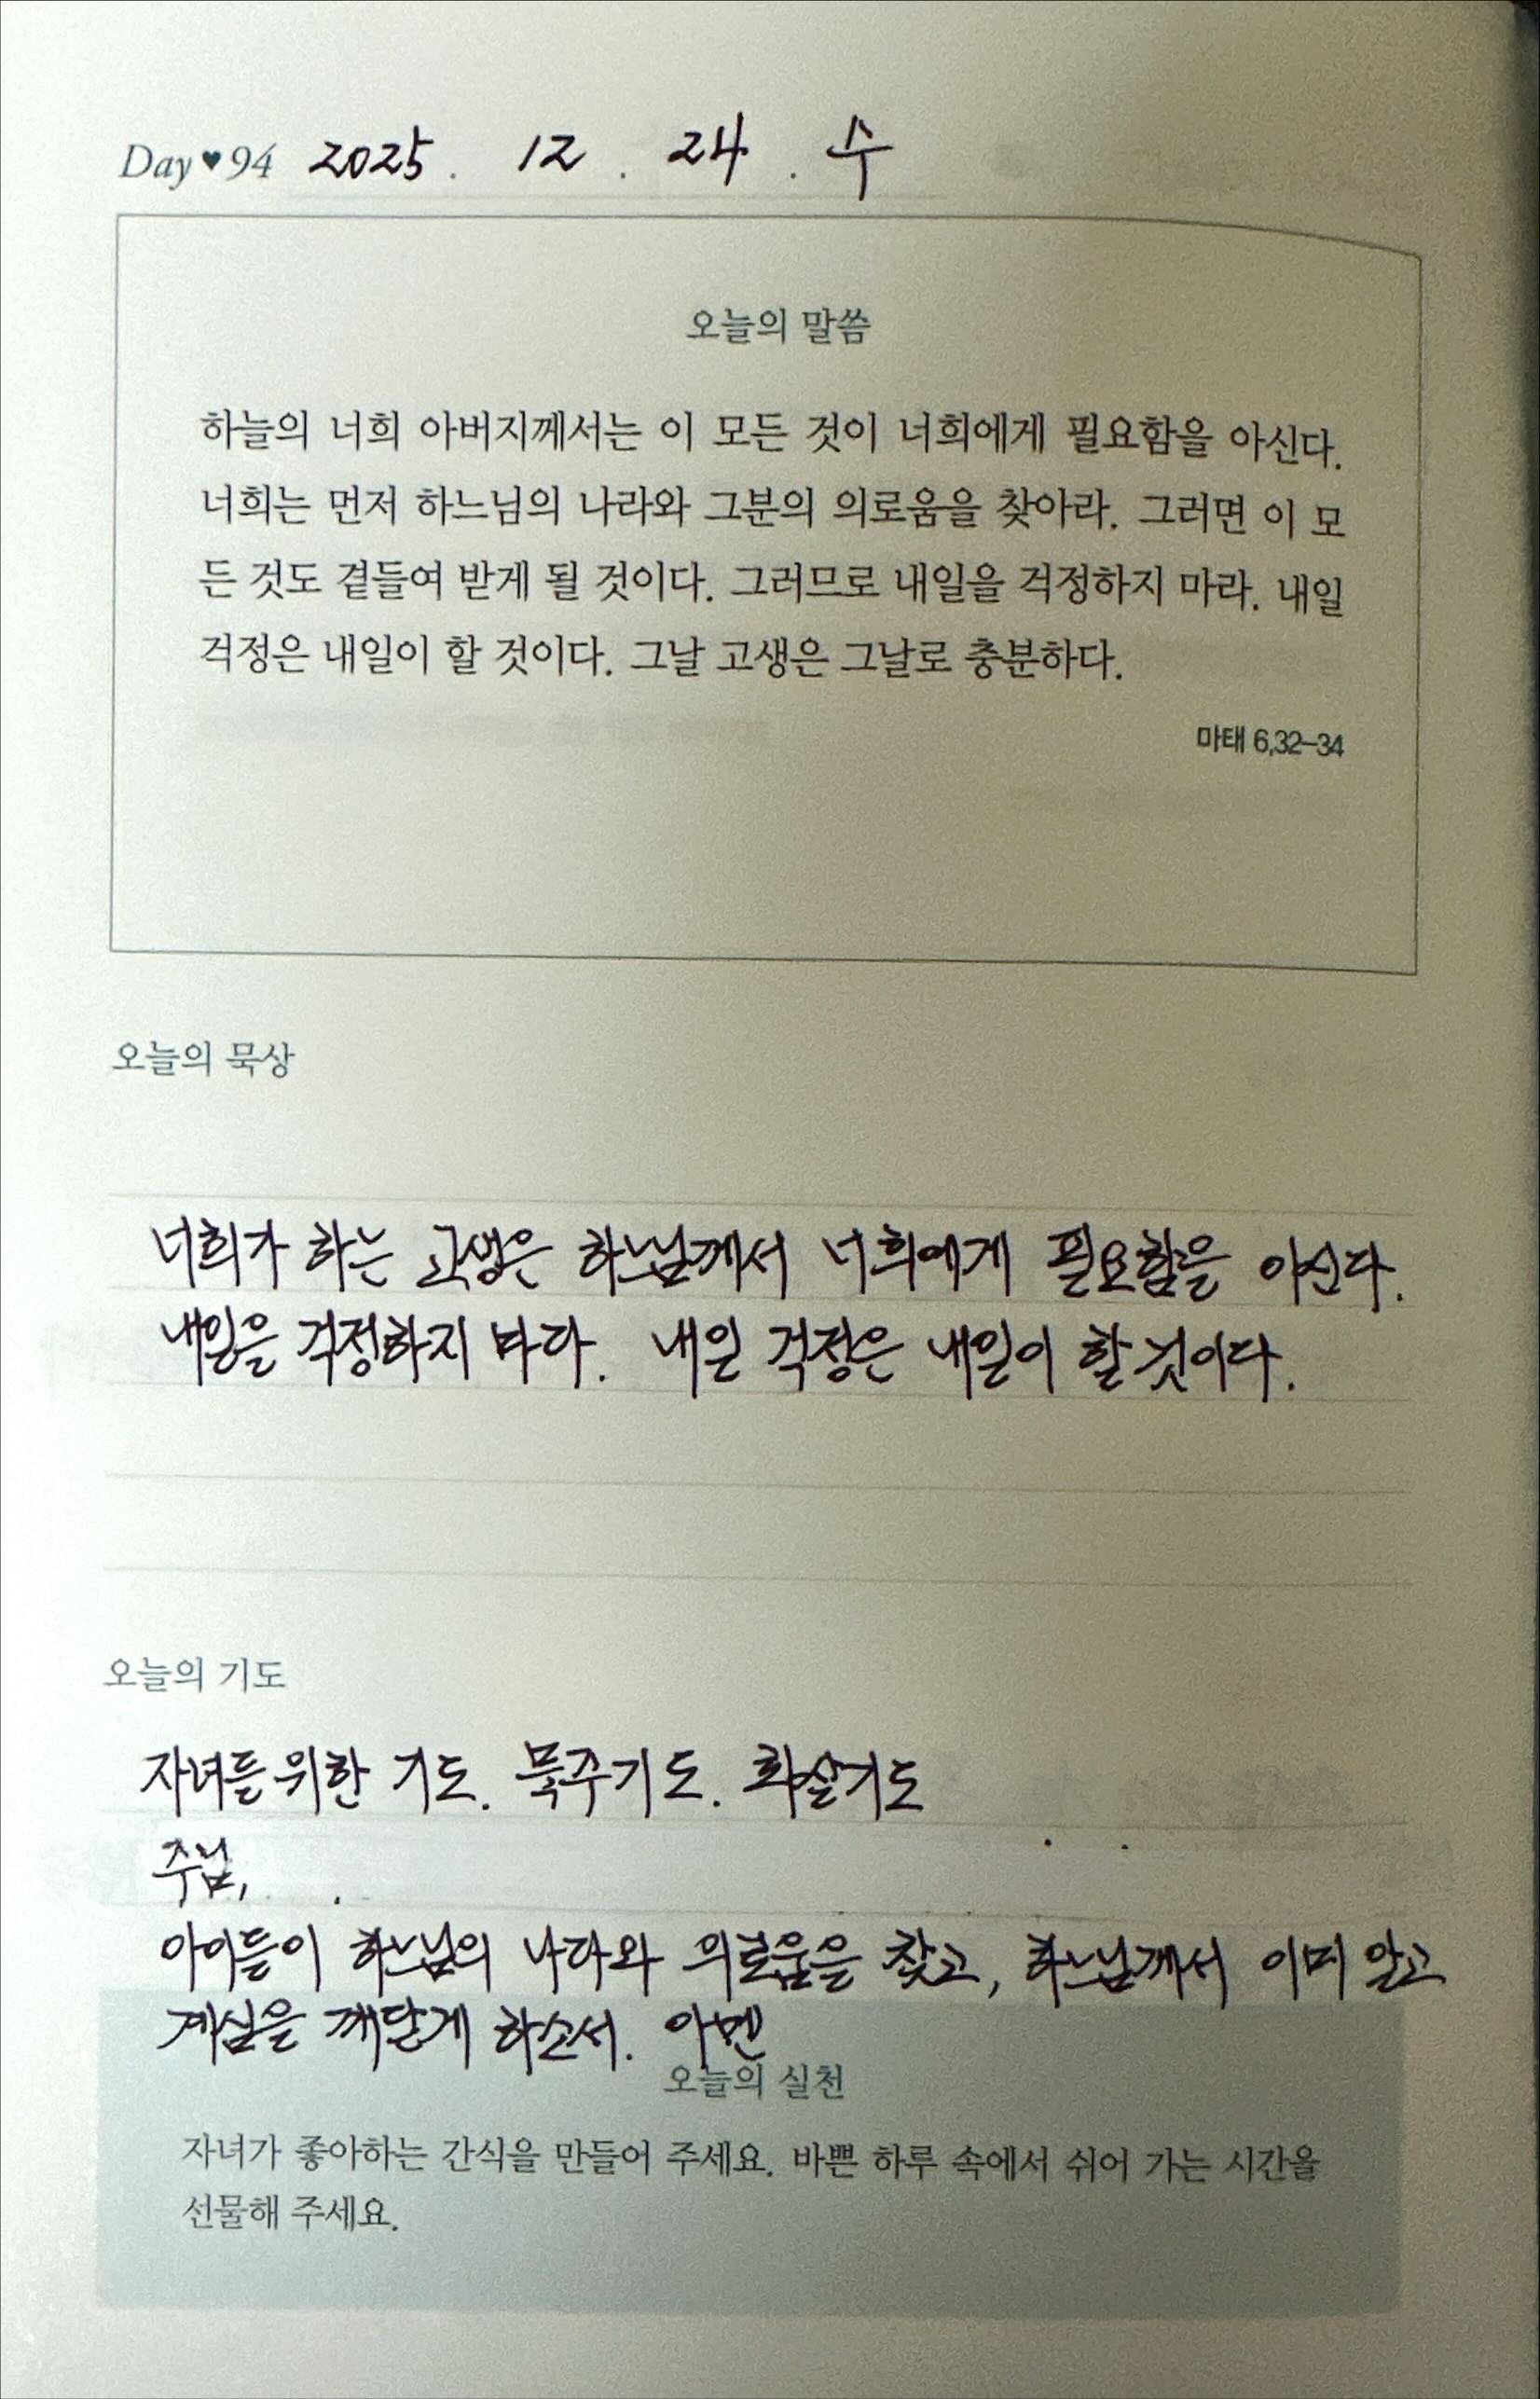 Day♥94 2025. 12. 24. 수
오늘의 말씀
하늘의 너희 아버지께서는 이 모든 것이 너희에게 필요함을 아신다.
너희는 먼저 하느님의 나라와 그분의 의로움을 찾아라. 그러면 이 모
든 것도 곁들여 받게 될 것이다. 그러므로 내일을 걱정하지 마라. 내일
걱정은 내일이 할 것이다. 그날 고생은 그날로 충분하다.
마태 6,32-34
오늘의 묵상
너희가 하는 고생은 하느님께서 너희에게 필요함을 아신다.
내일을 걱정하지 마라. 내일 걱정은 내일이 할 것이다.
오늘의 기도
자녀를 위한 기도. 묵주기도. 화살기도
주님,
아이들이 하느님의 나라와 의로움을 찾고, 하느님께서 이미 알고
계심을 깨닫게 하소서. 아멘
오늘의 실천
자녀가 좋아하는 간식을 만들어 주세요. 바쁜 하루 속에서 쉬어 가는 시간을
선물해 주세요.